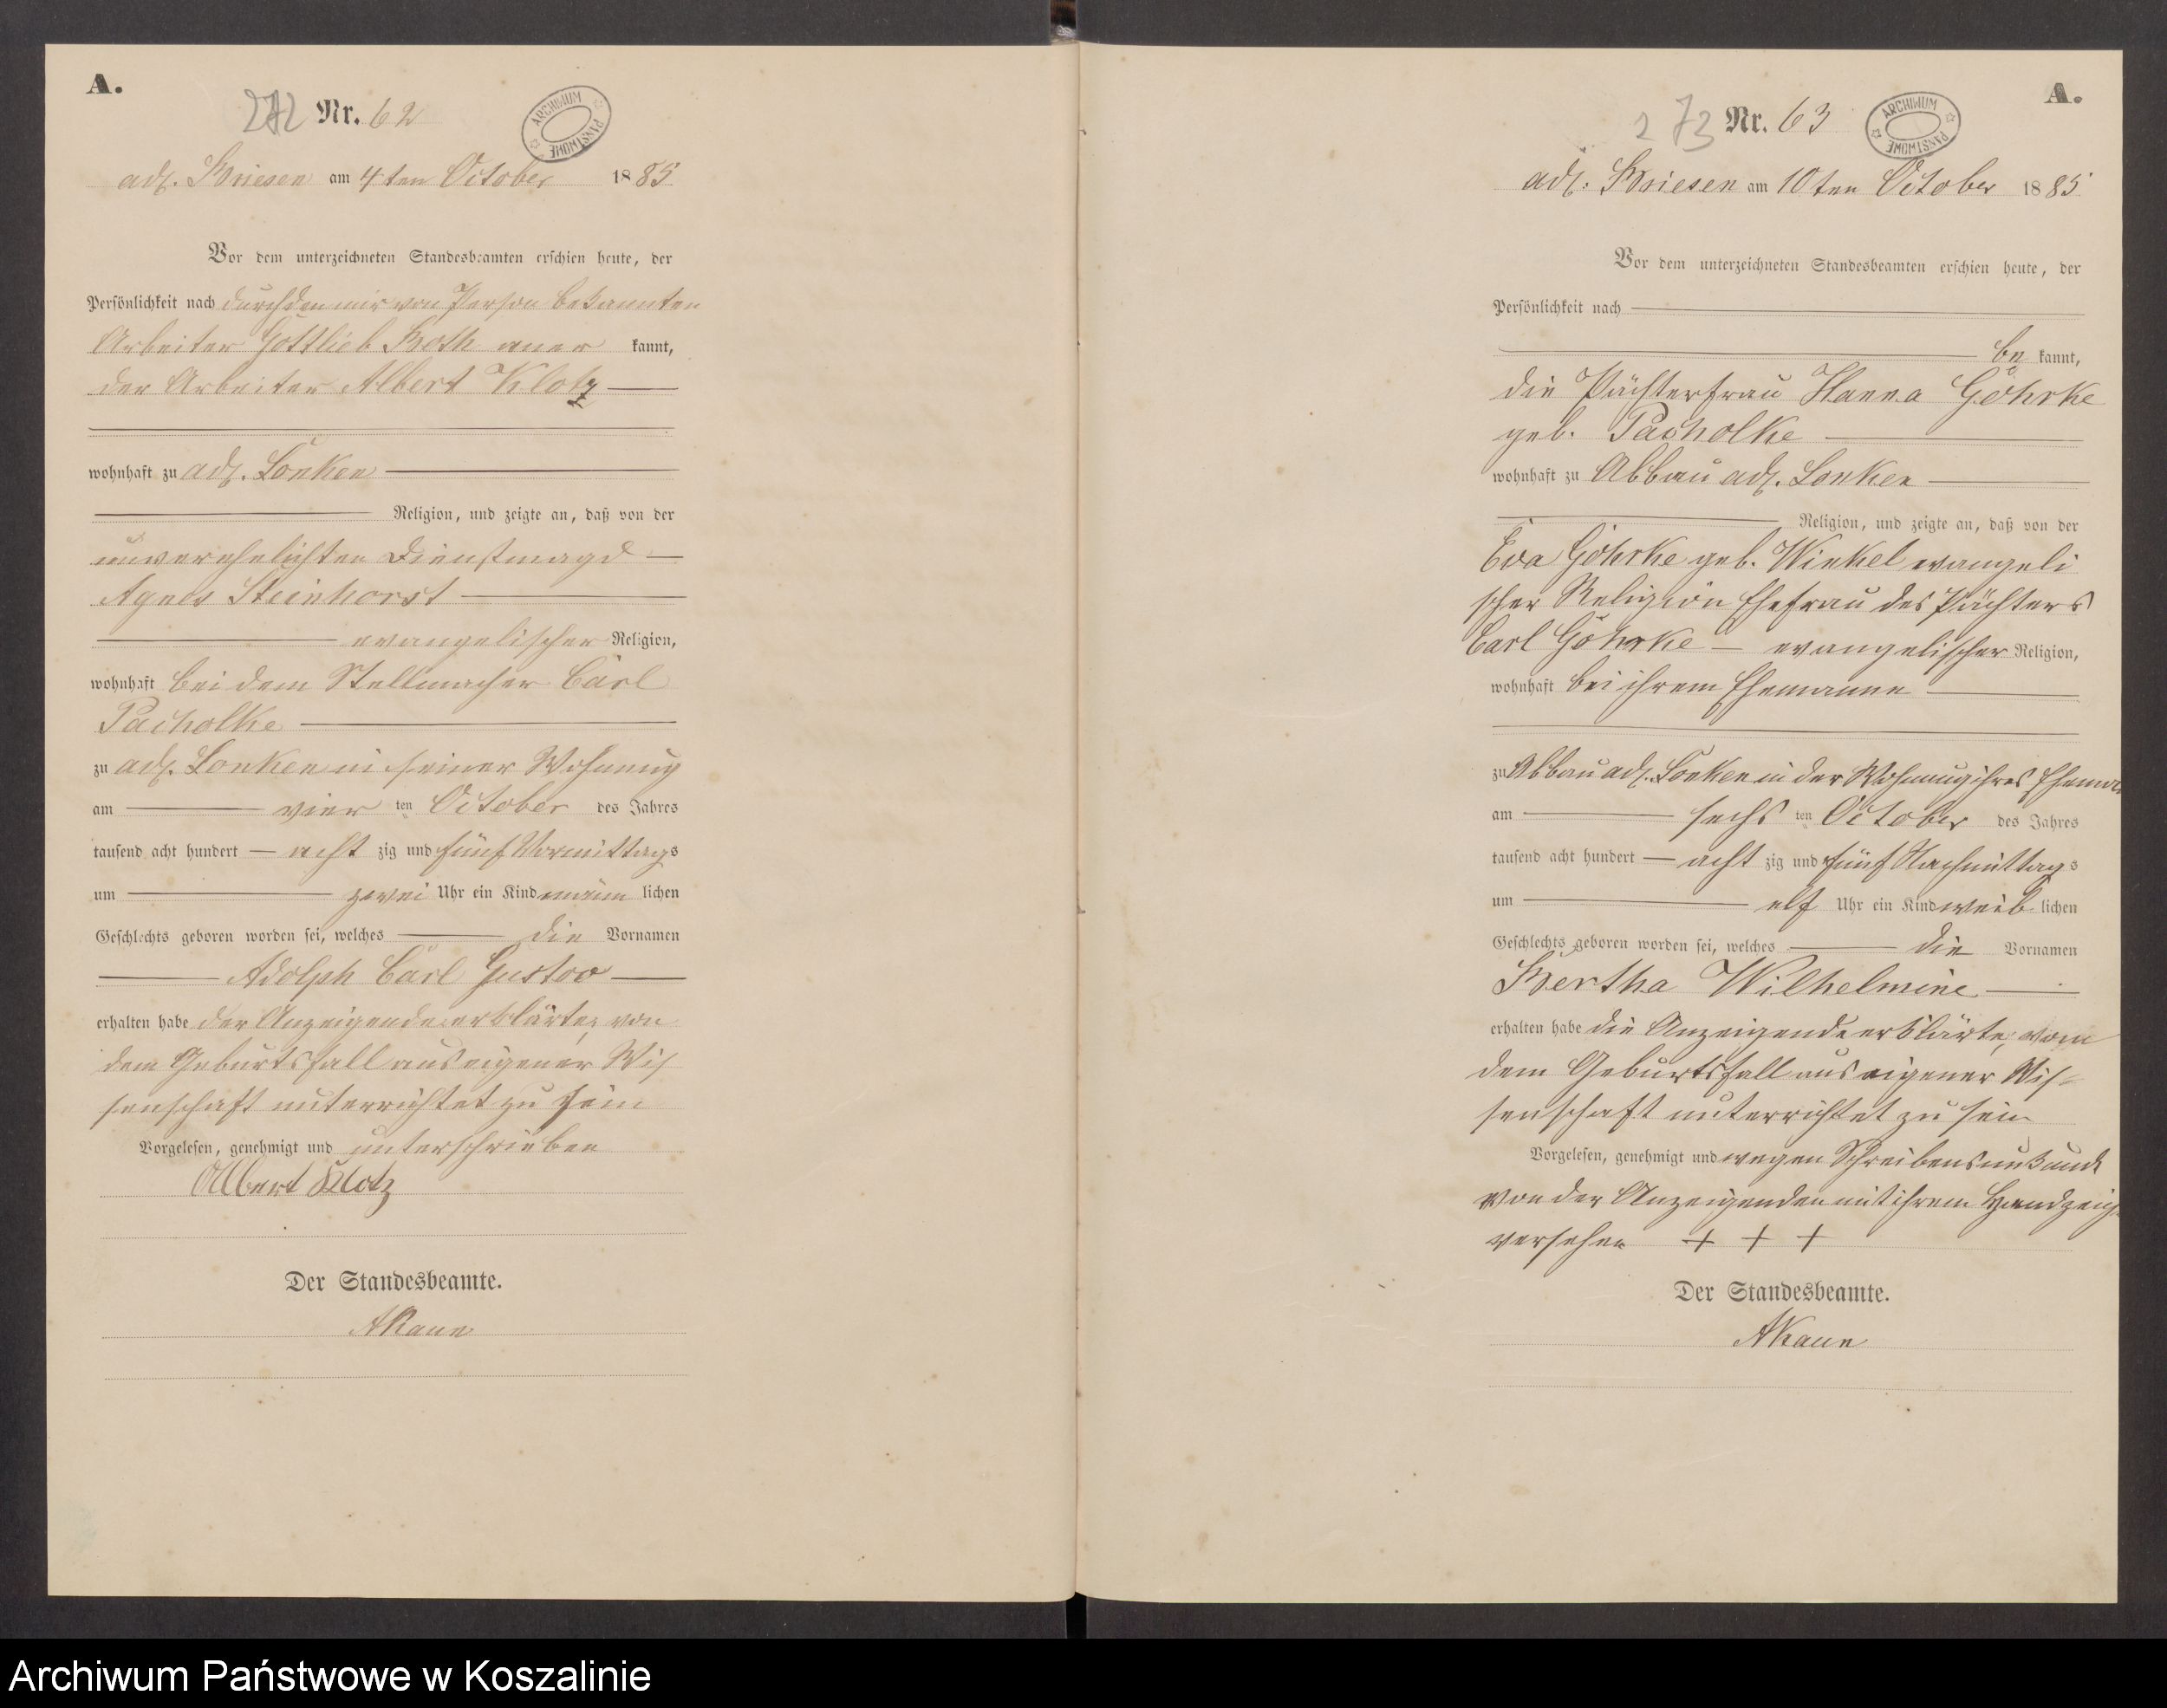 A.
272 Nr. 62
ARCHIWUM PAŃSTWOWE
adl. Briesen am 4ten October 1885
Vor dem unterzeichneten Standesbeamten erschien heute, der
Persönlichkeit nach durch den mir von Person bekannten
Arbeiter Gottlieb Both aner kannt,
der Arbeiter Albert Klotz
wohnhaft zu adl. Lonken
Religion, und zeigte an, daß von der
unverehelichten Dienstmagd
Agnes Steinhorst
evangelischer Religion,
wohnhaft bei dem Stellmacher Carl
Pacholke
zu adl. Lonken in seiner Wohnung
am vier ten October des Jahres
tausend acht hundert acht zig und fünf Vormittags
um zwei Uhr ein Kind männ lichen
Geschlechts geboren worden sei, welches die Vornamen
Adolph Carl Gustav
erhalten habe der Anzeigende erklärte, von
dem Geburtsfall aus eigener Wis
senschaft unterrichtet zu sein
Vorgelesen, genehmigt und unterschrieben
Albert Klotz
Der Standesbeamte.
A.
273 Nr. 63
ARCHIWUM PAŃSTWOWE
adl. Briesen am 10ten October 1885
Vor dem unterzeichneten Standesbeamten erschien heute, der
Persönlichkeit nach
be kannt,
die Pächterfrau Hanna Göhrke
geb. Pacholke
wohnhaft zu Abbau adl. Lonken
Religion, und zeigte an, daß von der
Eva Göhrke geb. Winkel evangeli
scher Religion Ehefrau des Pächters
Carl Göhrke evangelischer Religion,
wohnhaft bei ihrem Ehemanne
zu Abbau adl. Lonken in der Wohnung ihres
am sechs ten October des Jahres
tausend acht hundert acht zig und fünf Nachmittags
um elf Uhr ein Kind weib lichen
Geschlechts geboren worden sei, welches die Vornamen
Bertha Wilhelmine
erhalten habe die Anzeigende erklärte, von
dem Geburtsfall aus eigener Wis-
senschaft unterrichtet zu sein
Vorgelesen, genehmigt und wegen Schreibensunkunde
von der Anzeigenden mit ihrem
versehen + + +
Der Standesbeamte.
Archiwum Państwowe w Koszalinie